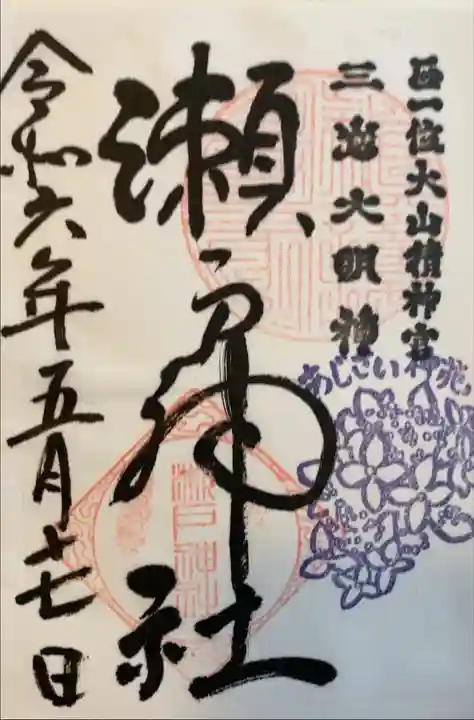 正一位大山積神宮
三嶌大明神
あじさい神苑
瀬戸神社
瀬戸神社
令和六年五月十七日